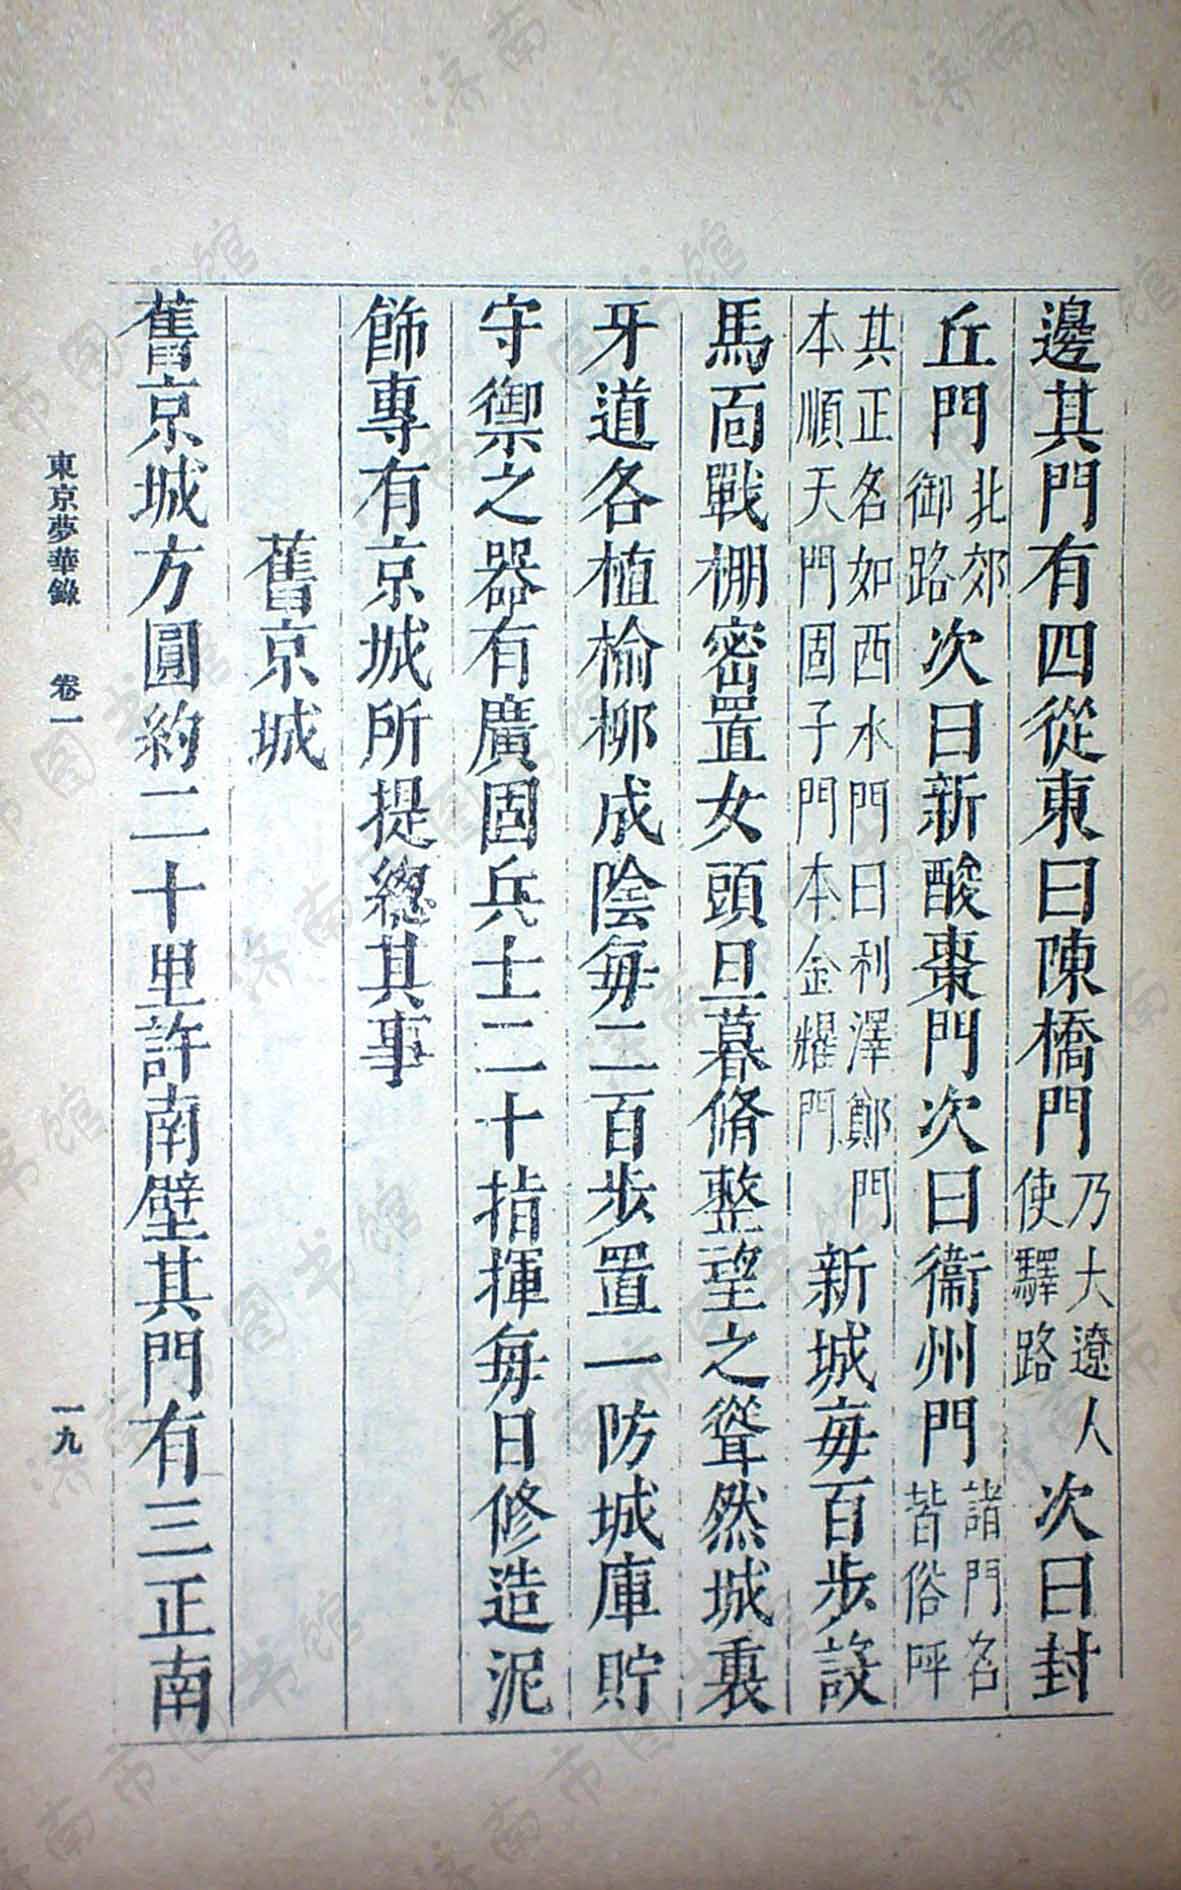 邊其門有四從東曰陳橋門乃大遼人使驛路次曰封
丘門北郊御路次曰新酸棗門次曰衞州門諸門名皆俗呼
其正名如西水門曰利澤鄭門本順天門固子門本金耀門新城每百步設
馬面戰棚密置女頭旦暮脩整望之聳然城裏
牙道各植榆柳成陰每二百步置一防城庫貯
守禦之器有廣固兵士二十指揮每日修造泥
飾專有京城所提總其事
舊京城
舊京城方圓約二十里許南壁其門有三正南
東京夢華錄 卷一 一九
济南市图书馆